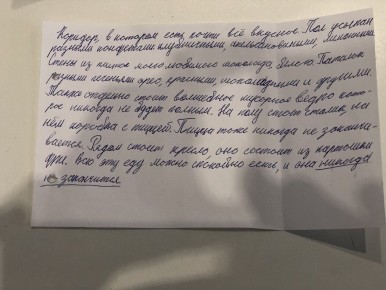 Коридор, в котором есть почти всё вкусное. Пол усыпан
разными конфетами клубничными, апельсиновыми,
Стены из плиток молочного шоколада, белого. Потолок
разными
Также отдельно стоит волшебное мусорное ведро кото-
рое никогда не будет полным. На полу стоит столик, на
нём коробка с пиццей. Пицца тоже никогда не заканчи-
вается. Рядом стоит кресло, оно состоит из картошки
фри. Всю эту еду можно спокойно есть, и она никогда
не закончится